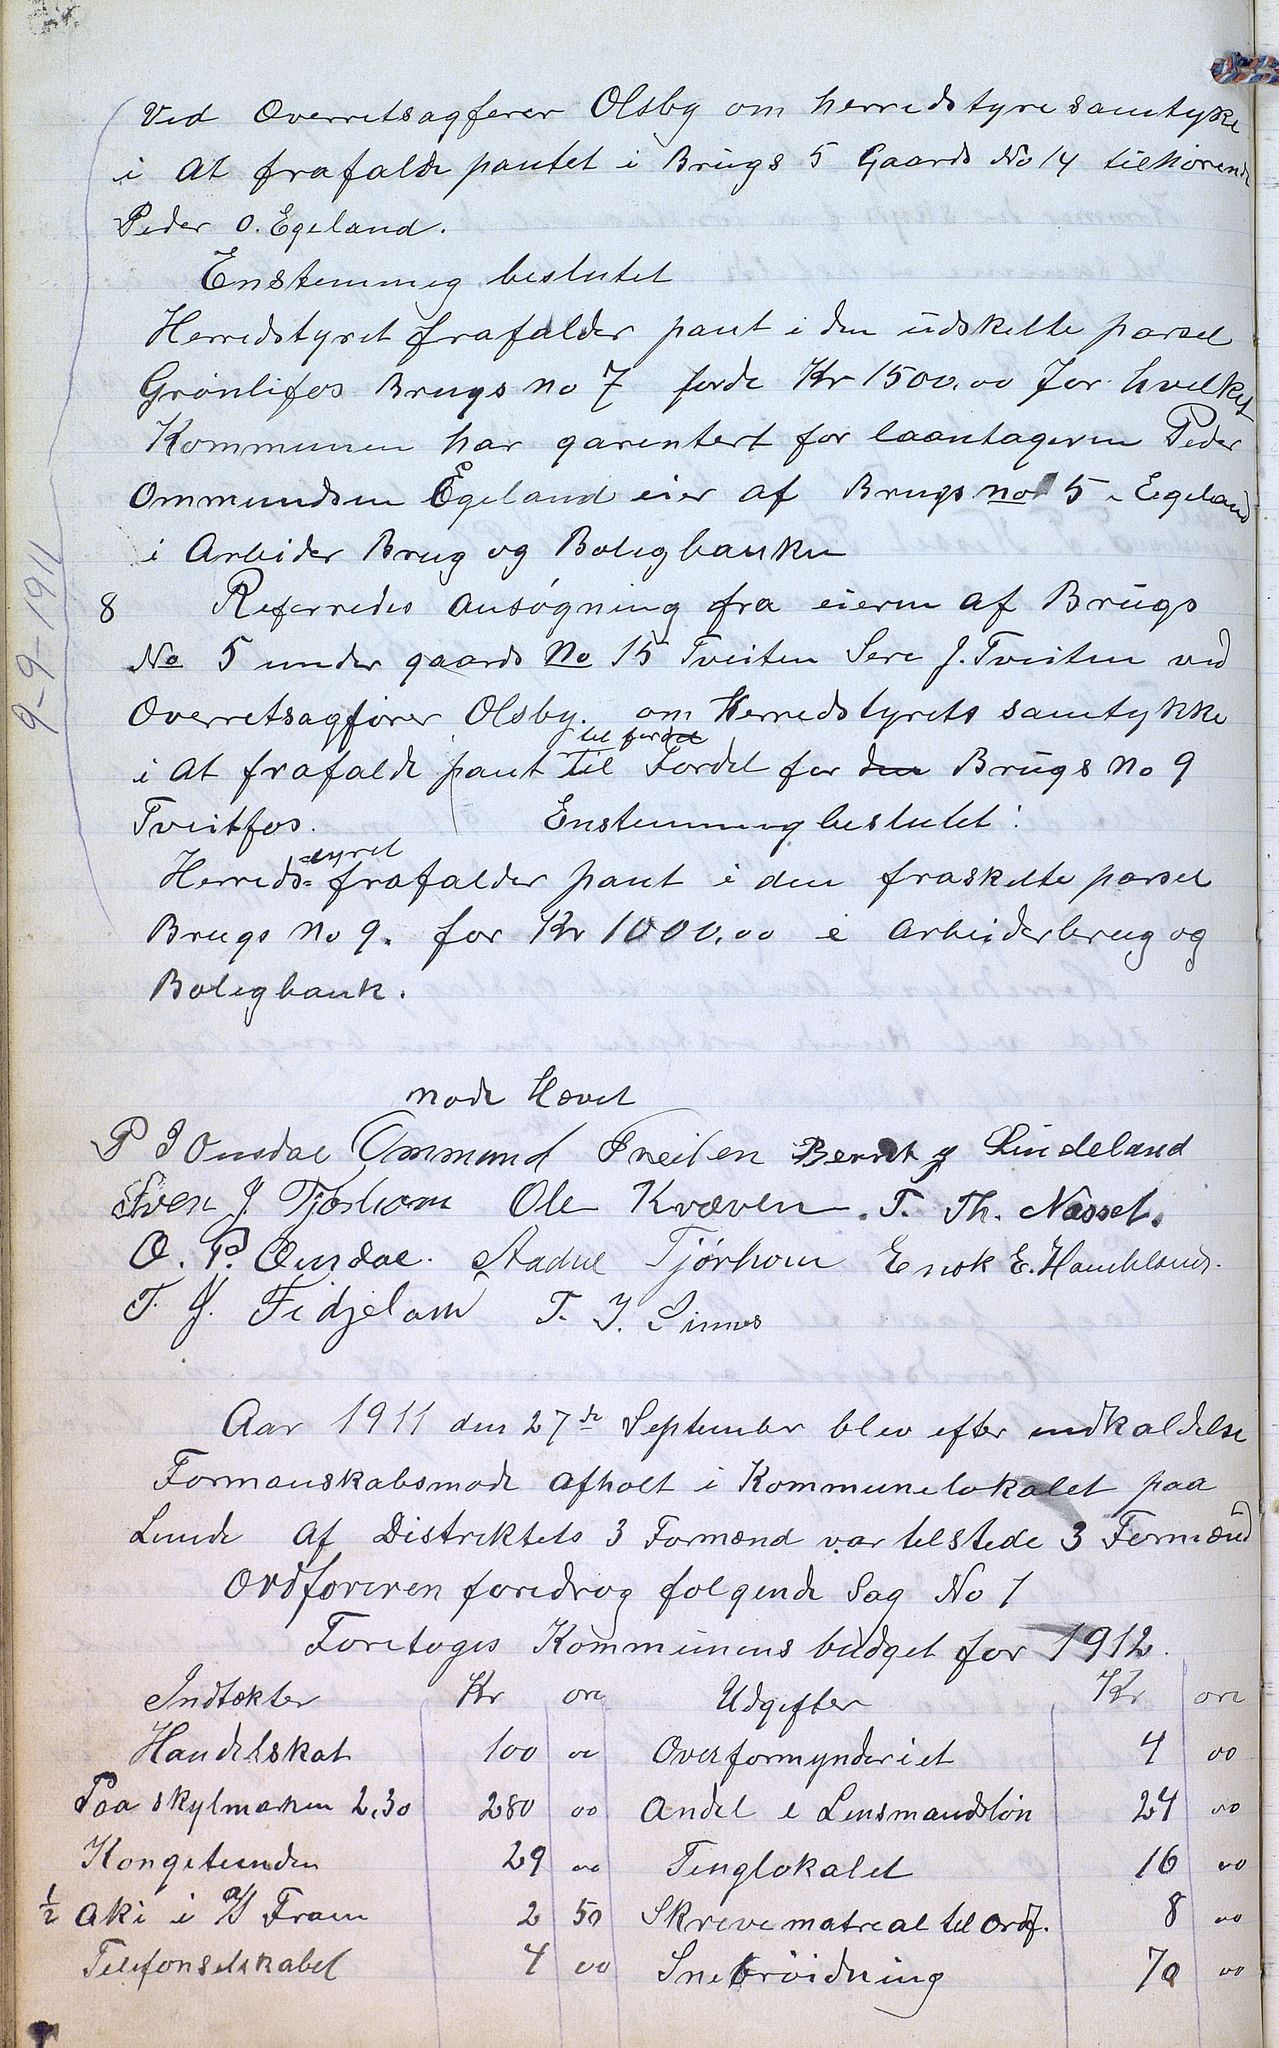 Ved Overretsagfører Olsby om herredstyre samtykke
i at frafalde pantet i Brugs 5 Gaards No 14 tilhørende
Peder O. Egeland.
Enstemmig beslutet
Herredstyret frafalder pant i den udskilte parsel
Grønlifos Brugs no 7 forde Kr 1500.00 for hvilket
Kommunen har garentert for laantageren Peder
Ommundsen Egeland eier af Brugs no 5 Eegeland
i Arbider Brug og Boligbanken
8 Referredes ansøgning fra eieren af Brugs
No 5 under gaards No 15 Tveiten Sere J. Tveiten ved
Overretsagfører Olsby. om Herredstyrets samtykke
til fordel
i at frafalde pant til Fordel for den Brugs no 9
Tveitfos. Enstemmig beslutet:
styret
Herreds= frafalder pant i den fraskilte parsel
Brugs no 9. for Kr 1000.00 i Arbeiderbrug og
Boligbank.
9-9-1911
møde Hævet
P I Ousdal Ommund Treiten Berndt J Lindeland
Sven J Tjørhom Ole Kvæven. T. Th. Nasset.
O. P. Ousdal. Aadne Tjørhom Enok E. Haukland.
T. J. Fidjeland T. J. Sinnes
Aar 1911 den 27de September blev efter indkaldelse
Formanskabsmøde afholt i Kommunelokalet paa
Lunde af Distriktets 3 Formænd var tilstede 3 Formænd
Ordføreren foredrog følgende Sag No 1
Foretoges Kommunens budget for 1912.
Indtækter Kr øre Udgifter Kr øre
Handelskat 100 00 Overformynderiet 4 00
Paa skylmarken 2,30 280 00 Andel i Lensmandsløn 24 00
Kongetienden 29 00 Tinglokalet 16 00
1/2 Aki i A/S Fram 2 50 Skrivematreal til Ordf. 8 00
Telefonselskabet 4 00 Snebrøidning 70 00